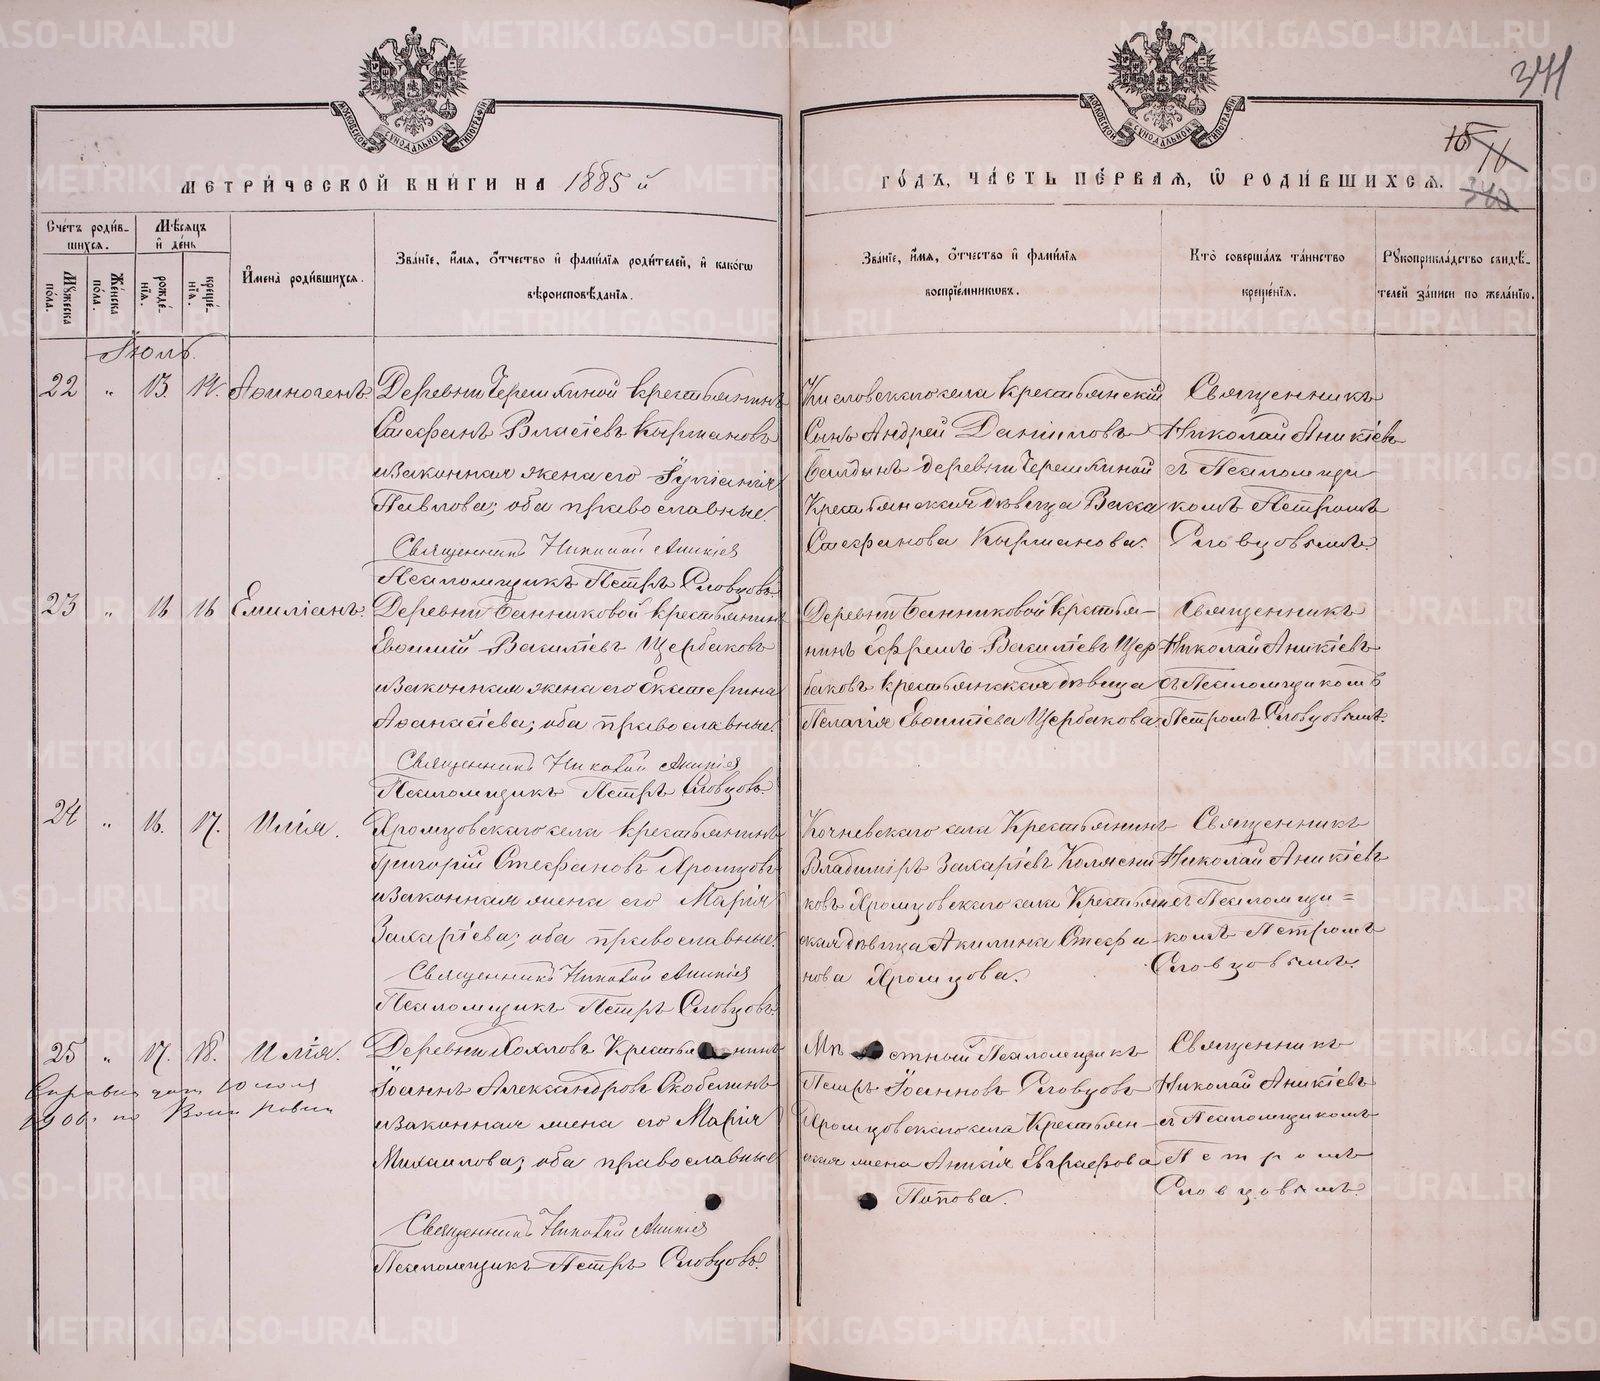 МЕТРИ́ЧЕСКОЙ КНИ́ГИ НА 1885 й
ГО́ДЪ, ЧА́СТЬ ПЕ́РВАЯ, Ѡ РОДИ́ВШИХСЯ.
341
16
340
МОСКОВСКОЙ СѴНОДАЛЬНОЙ ТИПОГРАФІИ
МОСКОВСКОЙ СѴНОДАЛЬНОЙ ТИПОГРАФІИ
Счетъ родившихся.
Мѣсяцъ и день
Мужеска пола.
Женска пола.
рожденія.
крещенія.
Имена родившихся.
Званіе, имя, отчество и фамилія родителей, и какогѡ
вѣроисповѣданія.
Званіе, имя, отчество и фамилія
воспріемниковъ.
Кто совершалъ таинство
крещенія.
Рукоприкладство свидѣ-
телей записи по желанію.
Іюль.
22 " 13. 14. Аѳиногенъ
Деревни Черемхиной крестьянинъ
Стефанъ Власіевъ Кырмановъ
и законная жена его Іуліанія
Павлова; оба православные.
Священникъ Николай Аникіев
Псаломщикъ Петръ Словцовъ
Кисловскаго села Крестьянскій
Сынъ Андрей Даниловъ
Балдинъ деревни Черемхиной
Крестьянская дѣвица Васса
Стефанова Кырманова.
Священникъ
Николай Аникіевъ
съ Псаломщи-
комъ Петромъ
Словцовымъ.
23 " 16 16 Емиліанъ.
Деревни Банниковой крестьянинъ
Евѳимій Василіевъ Щербаковъ
и законная жена его Екатерина
Аѳанасіева; оба православные.
Священникъ Николай Аникіев
Псаломщикъ Петръ Словцовъ
Деревни Банниковой Крестья-
нинъ Ефремъ Василіевъ Щер
баковъ крестьянская дѣвица
Пелагія Евѳиміева Щербакова.
Священникъ
Николай Аникіевъ
съ Псаломщикомъ
Петромъ Словцовымъ.
24 " 16. 17. Илія.
Хромцовскаго села крестьянинъ
Григорій Стефановъ Хромцовъ
и законная жена его Марія
Захаріева; оба православные.
Священникъ Николай Аникіев
Псаломщикъ Петръ Словцовъ.
Кочневскаго села Крестьянинъ
Владиміръ Захаріевъ Колясни
ковъ Хромцовскаго села Крестьян
ская дѣвица Акилина Стефа-
нова Хромцова.
Священникъ
Николай Аникіевъ
съ Псаломщи=
комъ Петромъ
Словцовымъ.
25 " 17. 18. Илія.
1900. по Воин повин
Деревни Хохловъ Крестьянинъ
Іоаннъ Александровъ Скобелинъ
и законная жена его Марія
Михаилова; оба православные
Священникъ Николай Аникіев
Псаломщикъ Петръ Словцовъ.
Мѣстный Псаломщикъ
Петръ Іоанновъ Словцовъ
Хромцовскаго села Крестьян-
ская жена Аникія Евграфова
Попова.
Священникъ
Николай Аникіевъ
съ Псаломщикомъ
Петромъ
Словцовымъ.
METRIKI.GASO-URAL.RU